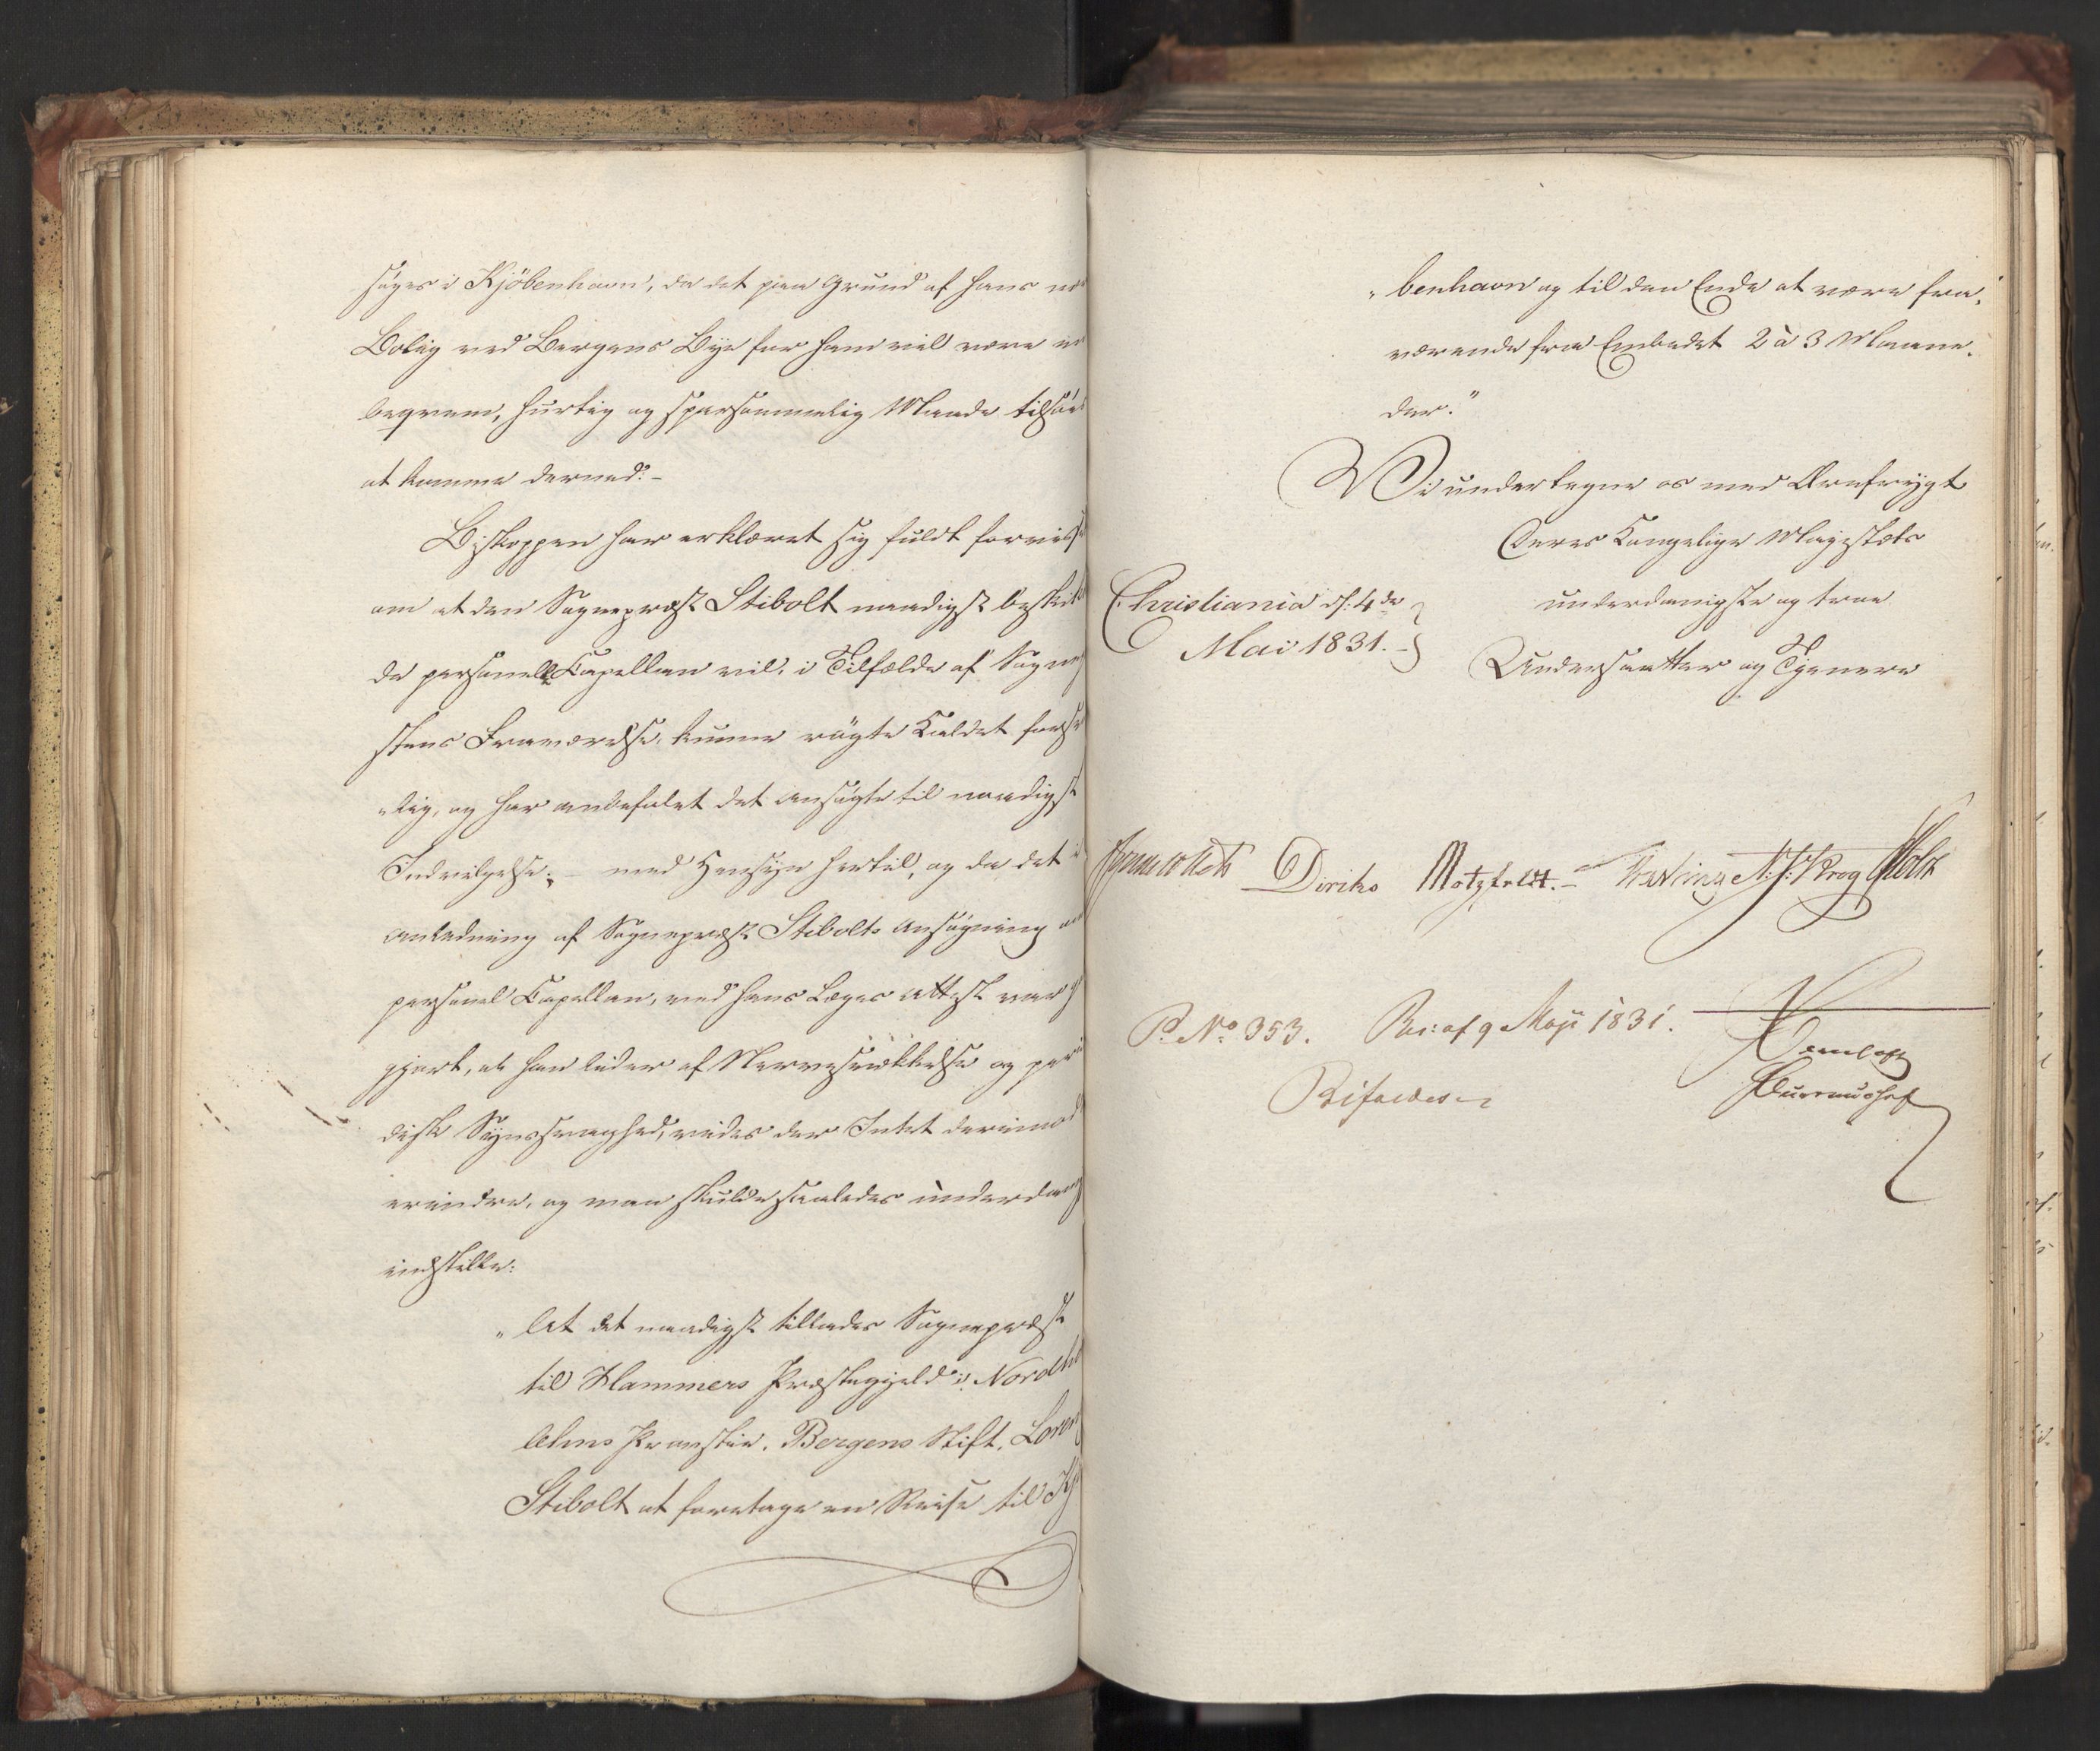 søges i Kjöbenhavn, da det paa Grund af hans nær
Bolig ved Bergens Bye for ham vil være en
beqvem, hurtig og sparsommelig Maade tilsøes
at komme derned.-
Biskoppen har erklæret sig fuldt forvisset
om at den Sognepræst Stibolt naadigst beskikke
de personelle Capellan vil, i Tilfælde af Sognepræ
stens Fraværelse, kunne røgte Kaldet forsvar
„lig, og har anbefalet det Ansøgte til naadigst
Indvilgelse; - med Hensyn hertil, og da det i
Anledning af Sognepræst Stibolts Ansøgning om
personel Capellan, ved hans Læges Attest var god
gjort, at han lider af Nervesvækkelse og perio
disk Synssvaghed, vides der Intet derimod at
erindre, og man skulde saaledes underdanigst
indstille:
„At det naadigst tillades Sognepræst
til Hammers Præstegjeld i Nordho
lehns Provstie, Bergens Stift, Loren
Stibolt at foretage en Reise til Kjö
„benhavn og til den Ende at være fra„
værende fra Embedet 2 à 3 Maane„
der."
Vi undertegne os med Ærefrygt
Deres Kongelige Majestæts
Christiania d: 4de underdanigste og troe
Mai 1831.- Undersaatter og Tjenere
Diriks Motzfeldt.- N. J. Krog Holst
P. No. 353. Res: af 9 Maji 1831.
Bifaldes